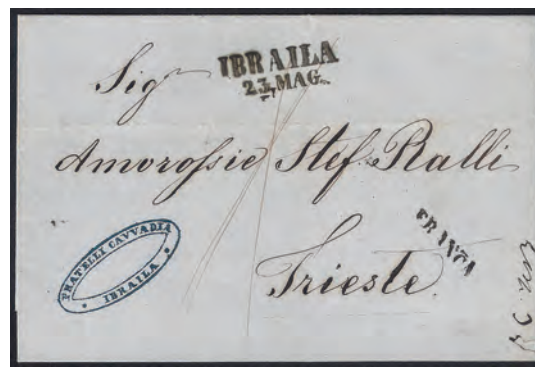 IBRAILA
23. MAG.
Sigr
Amorossie Stef. Ralli
FRANCA
Trieste.
FRATELLI CAVVADIA
IBRAILA